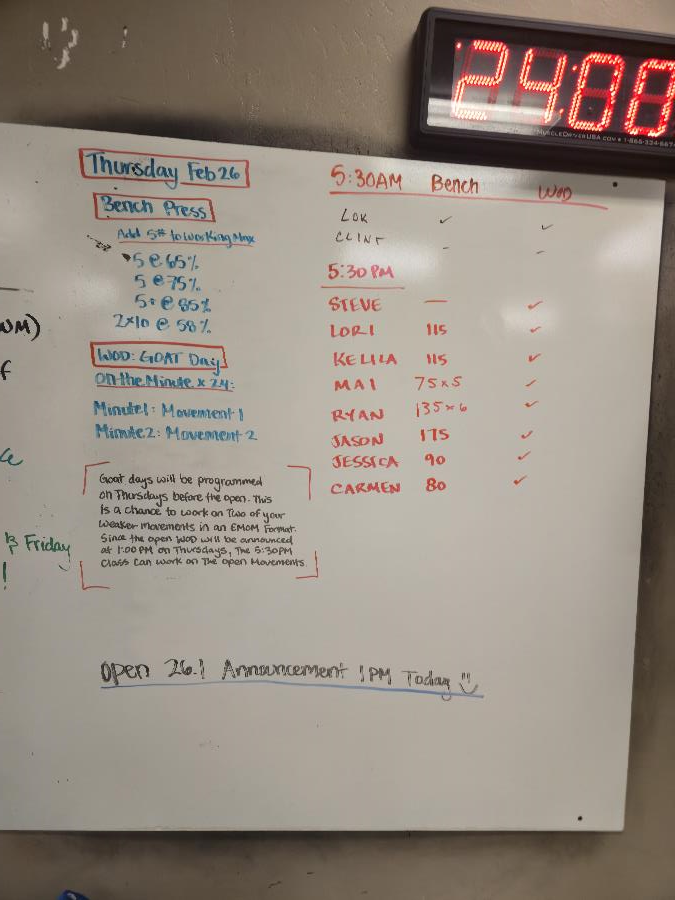 24:00
MuscleDriverUSA.com
Thursday Feb 26
Bench Press
Add 5# to working Max
5 @ 65%
5 @ 75%
5+ @ 85%
2x10 @ 58%
WOD: GOAT Day
on the Minute x 24:
Minute1: Movement 1
Minute2: Movement 2
Goat days will be programmed
on Thursdays before the open. This
is a chance to work on Two of your
weaker movements in an EMOM Format.
Since the open WOD will be announced
at 1:00 PM on Thursdays, The 5:30PM
Class can work on The open Movements
5:30AM Bench WOD
LOK ✓ ✓
CLINT - -
5:30 PM
STEVE — ✓
LORI 115 ✓
KELILA 115 ✓
MAI 75x5 ✓
RYAN 135x6 ✓
JASON 175 ✓
JESSICA 90 ✓
CARMEN 80 ✓
WM)
f
Friday
!
Open 26.1 Announcement 1PM Today